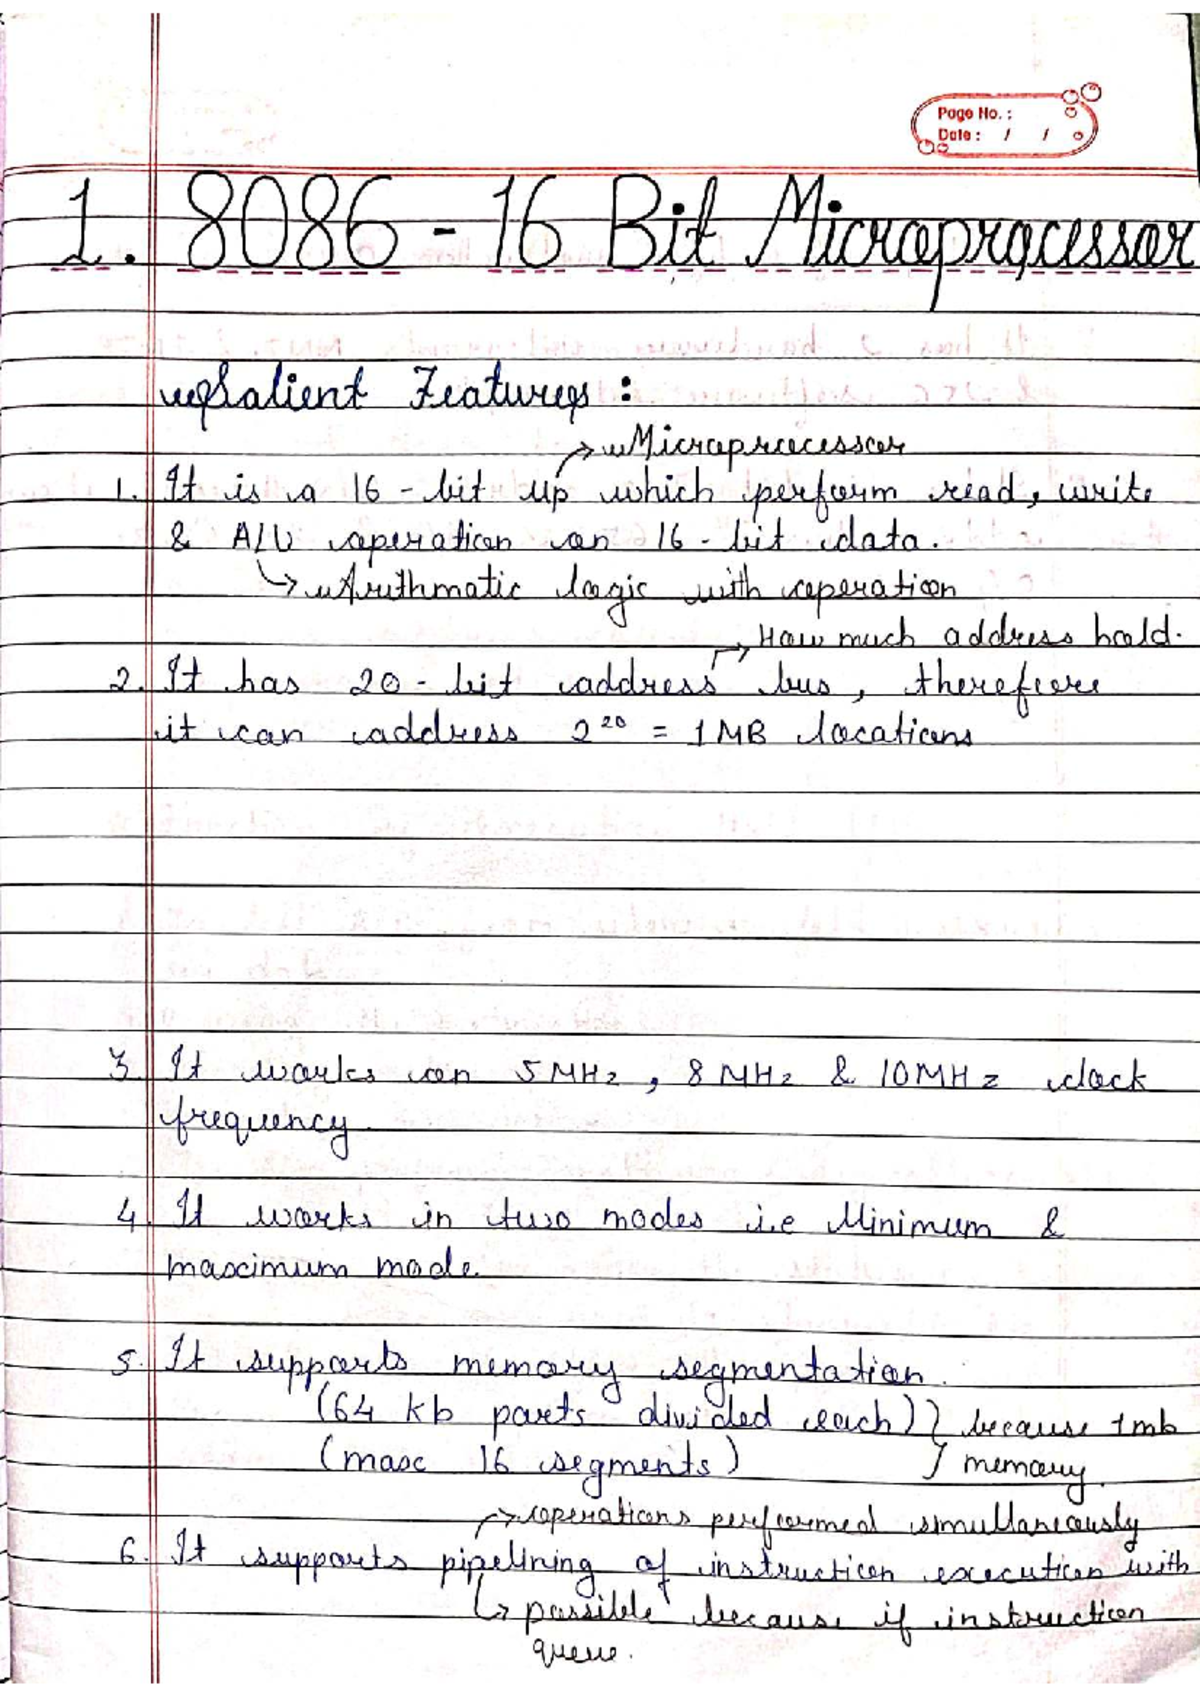 Page No. :
Date : / /
1. 8086 - 16 Bit Microprocessor
Salient Features :
→ Microprocessor
1. It is a 16-bit up which perform read, write
& ALU operation on 16-bit data.
→ Arithmatic logic with operation
→ How much address hold.
2. It has 20-bit address bus, therefore
it can address 2²⁰ = 1MB locations
3. It works on 5MHz, 8MHz & 10MHz clock
frequency.
4. It works in two modes i.e Minimum &
maximum mode.
5. It supports memory segmentation.
(64 kb parts divided each) } because 1mb
(max 16 segments) } memory.
→ operations performed simultaneously
6. It supports pipelining of instruction execution with
→ possible because if instruction
queue.